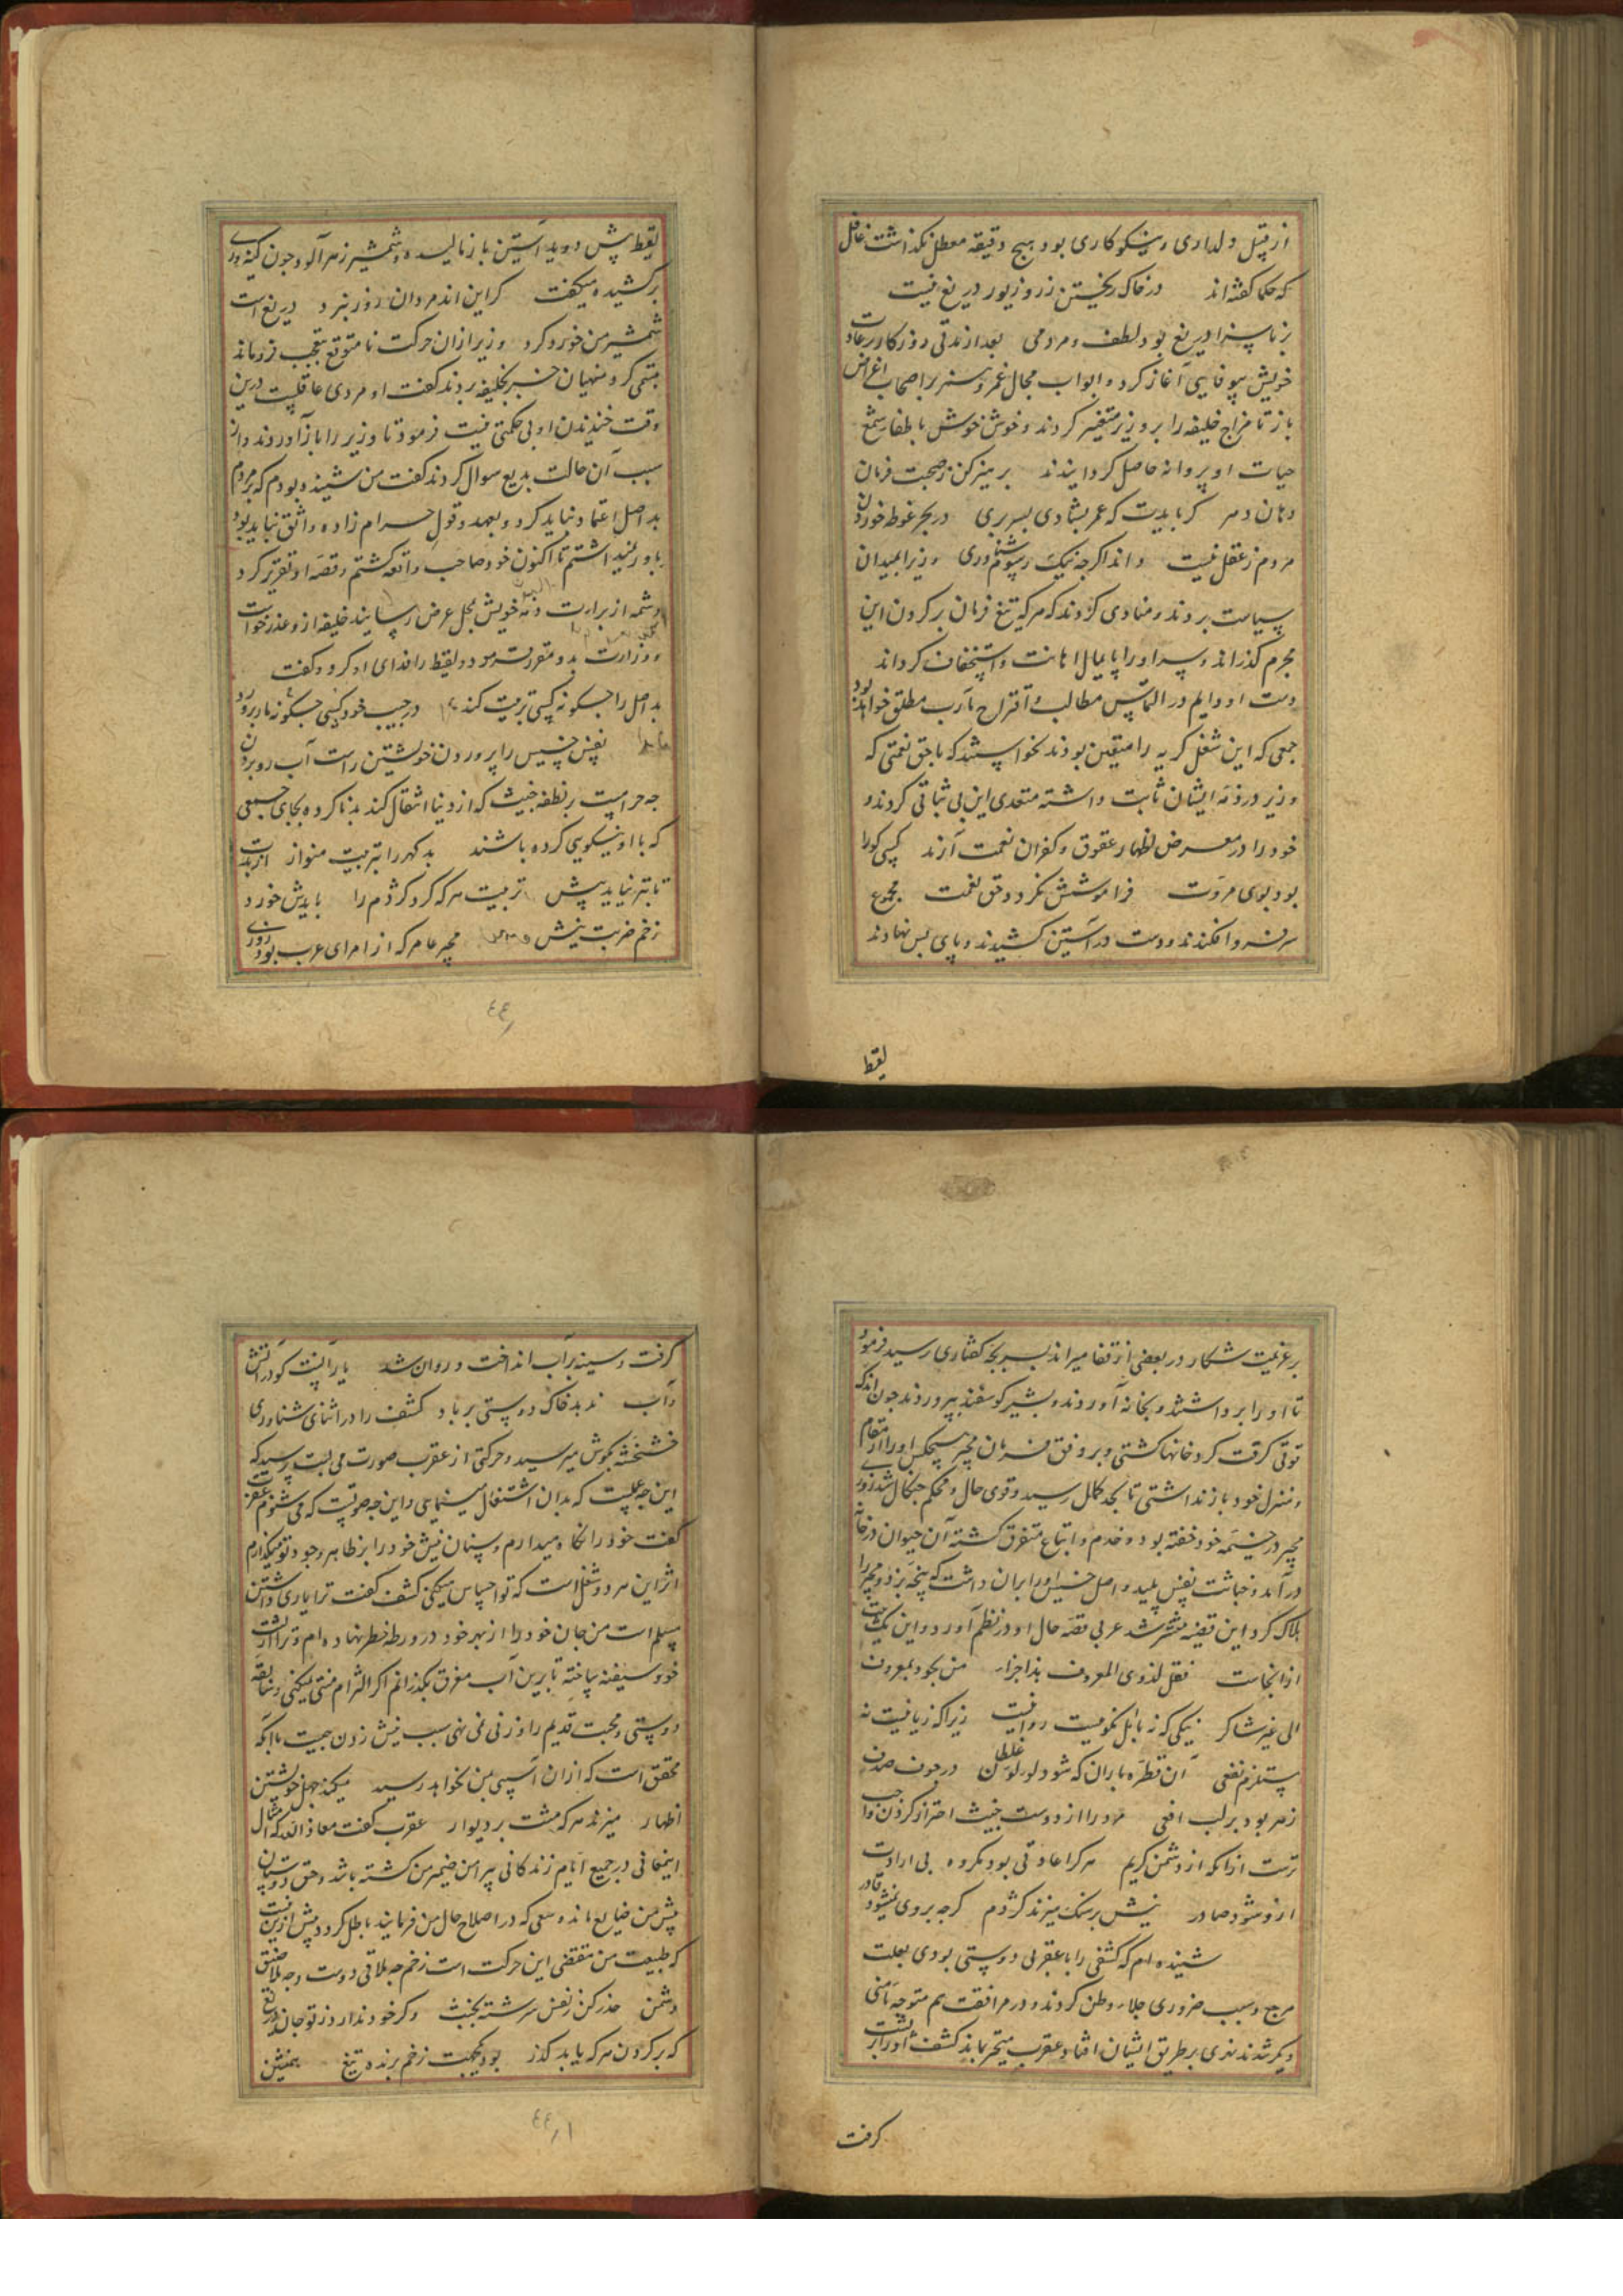 از قبیل دلداری و نیکوکاری بود هیچ دقیقه معطل نکذاشت غافل
که حکما کفته اند در خاک ریختن زر و زیور دریغ نیست
بر ناسزا دریغ بود لطف و مردمی بعد از مدتی روزکار بر عادت
خویش بیوفایی آغاز کرد و ابواب مجال غمز و بر اصحاب اغراض
باز تا مزاج خلیفه را بر وزیر متغیر کردند و خوش خوش باطفاء شمع
حیات او پروانه حاصل کردانیدند پرهیز کن ز صحبت فرمان
دهان دهر کر بایدت که عمر بشادی بسربری در بحر غوطه خوردن
مردم ز عقل نیست داند اکرجه نیک رسوم شناوری وزیر را بمیدان
سیاست بردند و منادی کردند که هر که تیغ فرمان بر کردن این
مجرم کذراند و سر او را پایمال اهانت و استخفاف کرداند
دست او دایم در التماس مطالب و اقتراح مآرب مطلق خواهد بود
جمعی که این شغل کریه را متعین بودند نخواستند که با حق نعمتی که
وزیر در ذمه ایشان ثابت داشته متعدی این بی ثباتی کردند و
خود را در معرض اظهار عقوق و کفران نعمت آرند کسی کو را
بود بوی مروت فراموشش نکردد حق نعمت مجموع
سر فرو افکندند و دست در آستین کشیدند و پای پس نهادند
لقیط
لقیط پیش دوید آستین باز مالیده و شمشیر زهرآلود جون کینه ور
برکشیده میکفت کر این اند مردان روز نبرد دریغ است
شمشیر من خورد کرد وزیر از ان حرکت نا متوقع بتعجب فرو ماند
تبسمی کرد منهیان خبر بخلیفه بردند کفت او مردی عاقلیست درین
وقت خندیدن او بی حکمتی نیست فرمود تا وزیر را باز آوردند و از
سبب آن حالت بدیع سوال کردند کفت من شنیده بودم که بر مردم
بد اصل اعتماد نباید کرد و بعهد و قول حرام زاده واثق نباید بود
باور نمیداشتم تا اکنون خود صاحب واقعه کشتم و قصه او تقریر کرد
و شمه از براءت ذمه خویش بمحل عرض رسانید خلیفه ازو عذر خواست
و وزارت بدو مقرر فرمود و لقیط را فدای او کرد و کفت
بد اصل را جکونه کسی تربیت کند در جیب خود کسی جکونه مار پرورد
نفس خسیس را پروردن خویشتن راست آب رو بردن
جه حرامیست بر نطفه خبیث که از دنیا انتقال کند بد ناکرده بجای جمعی
که با او نیکویی کرده باشند بد کهر را بتربیت منواز از بدت
تا بتر نیاید پیش تربیت هر که کرد کژدم را بایدش خورد
زخم ضربت نیش مجیر عامر که از امرای عرب بود روزی
٤٤
بر عزیمت شکار در بعضی از قفار میراند بسر بجه کفتاری رسید فرمود
تا او را برداشتند و بخانه آوردند و بشیر کوسفند بپروردند جون اندک
قوتی کرفت کرد خانها کشتی و بر وفق فرمان مجیر هیچکس او را از مقام
و منزل خود باز نداشتی تا بحد کمال رسید و قوی حال و محکم جنکال شد روزی
مجیر در خیمه خود خفته بود و خدم و اتباع متفرق کشته آن حیوان در خانه
درآمد و خباثت نفس پلید و اصل خسیس او را بران داشت که پنجه بزد و مجیر را
هلاک کرد این قضیه منتشر شد عربی قصه حال او در نظم آورد و این یک بیت
از انجاست فقل لذوی المعروف هذا جزاء من یجود بمعروف
الی غیر شاکر نیکی که نه با اهل نکوییست روا نیست زیرا که زیانیست نه
مستلزم نفعی آن قطره باران که شود لولو غلطان در جوف صدف
زهر بود بر لب افعی مرد را از دوست خبیث احتراز کردن واجب
ترست از انکه از دشمن کریم هر کرا عادتی بود مکروه بی ارادت
ازو شود صادر نیش بر سنک میزند کژدم کرجه بر وی نمیشود قادر
شنیده ام که کشفی را با عقربی دوستی بودی بعلت
هرج و سبب ضروری جلاء وطن کردند و در مرافقت هم متوجه مامنی
دیکر شدند ندی بر طریق ایشان افتاد عقرب متحیر بماند کشف او را بر پشت
کرفت
کرفت و سینه بر آب انداخت و روان شد یار آنست کو در آتش
و آب ندهد خاک دوستی بر باد کشف را در اثنای شناوری
خشخشه بکوش میرسید و حرکتی از عقرب صورت می بست پرسید که
این جه عملیست که بدان اشتغال مینمایی و این جه صوتیست که می شنوم عقرب
کفت خود را نکاه میدارم و سنان نیش خود را بر ظاهر وجود تو میکذارم
اثر این هر دو شغل است که تو احساس میکنی کشف کفت ترا یاری داشتن
مسلم است من جان خود را از بهر خود در ورطه خطر نهاده ام و ترا از پشت
خود سفینه ساخته تا برین آب مغرق بکذرانم اکر التزام منتی نمیکنی و سابقه
دوستی و محبت قدیم را وزنی نمی نهی سبب نیش زدن جیست با آنکه
محقق است که از ان آسیبی بمن نخواهد رسید میکند جهل خویشتن
اظهار میزند هر که مشت بر دیوار عقرب کفت معاذ الله که امثال
این معانی در جمیع ایام زندکانی پیرامن ضمیر من کشته باشد و حق دوستان
پیش من ضایع مانده سعی که در اصلاح حال من فرمایند باطل کردد بیش ازین نیست
که طبیعت من مقتضی این حرکت است زخم جه ملاقی دوست و جه ملاصق
دشمن حذر کن ز نفس سرشته بخبث وکر خود ندارد ز تو جان دریغ
که بر کردن هر که یابد کذر بود بمحبت زخم برنده تیغ همنشین
٤٤/١